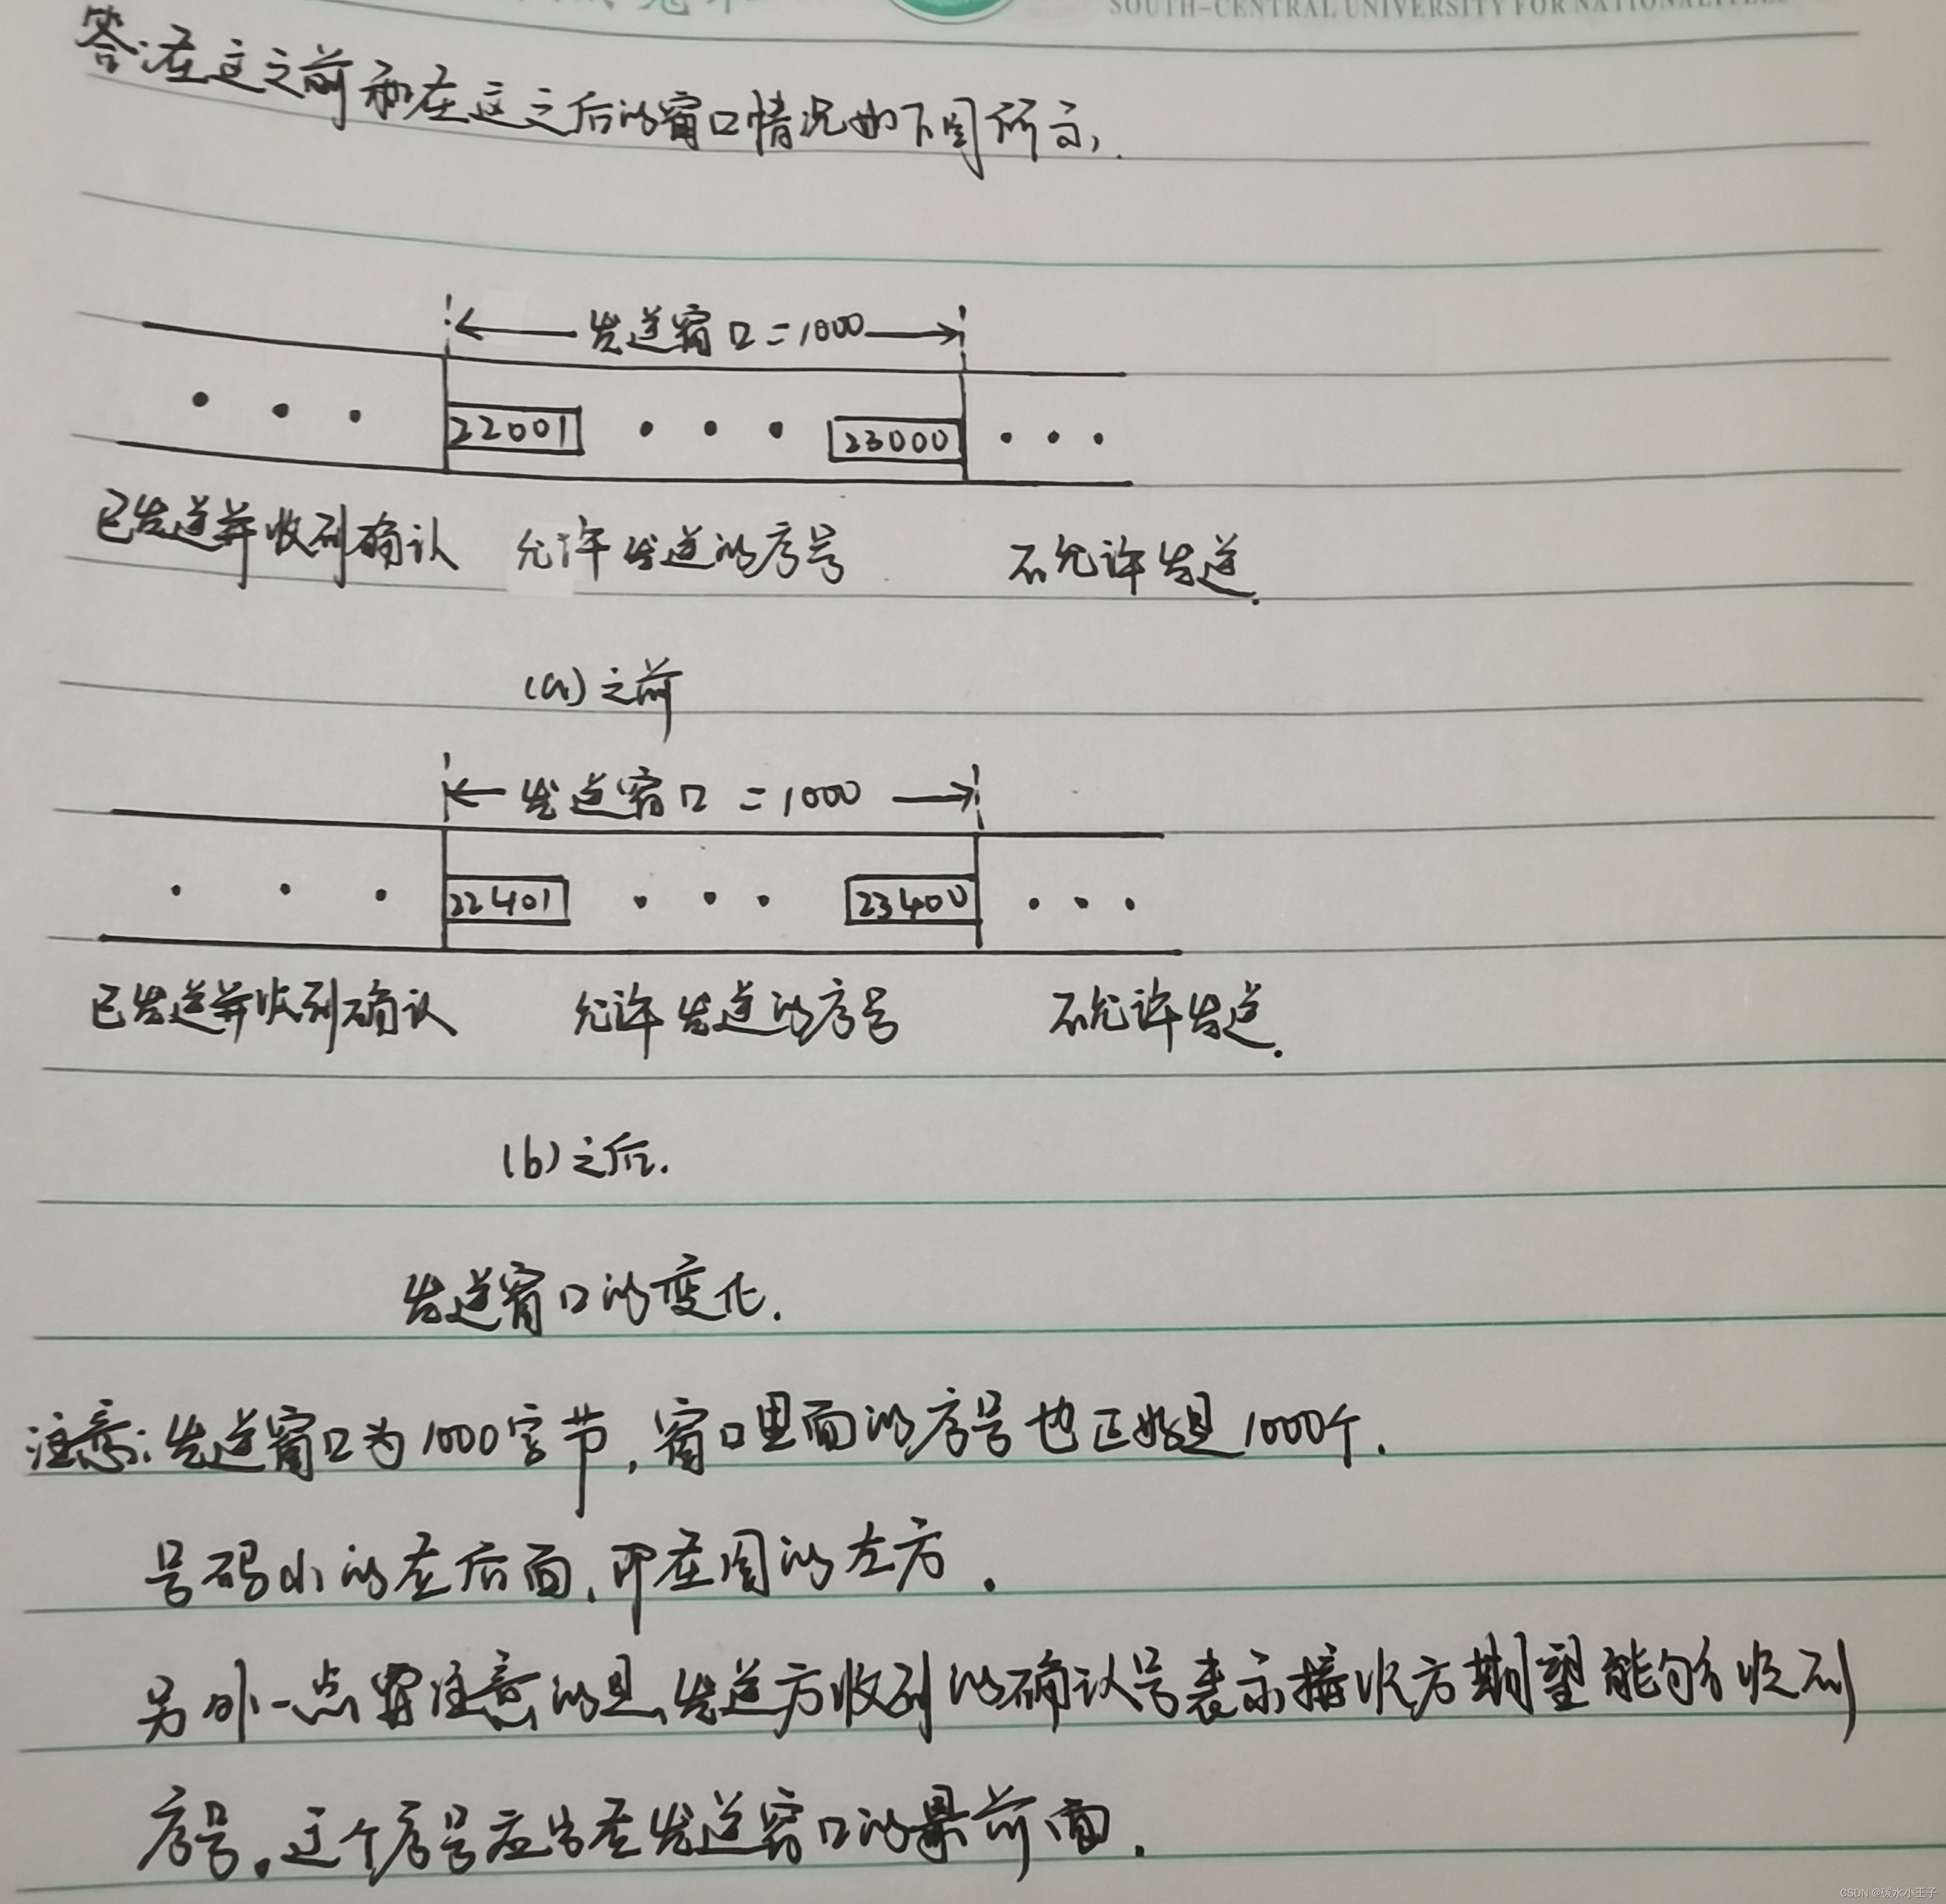 SOUTH-CENTRAL UNIVERSITY FOR NATIONALITIES
答:在这之前和在这之后的窗口情况如下图所示.
发送窗口=1000
22001
23000
已发送并收到确认 允许发送的序号 不允许发送.
(a)之前
发送窗口=1000
22401
23400
已发送并收到确认 允许发送的序号 不允许发送.
(b)之后.
发送窗口的变化.
注意:发送窗口为1000字节,窗口里面的序号也正好是1000个.
号码小的在后面,即在图的左方.
另外一点要注意的是,发送方收到的确认号表示接收方期望能够收到
序号。这个序号应当在发送窗口的最前面.
CSDN @碳水小王子